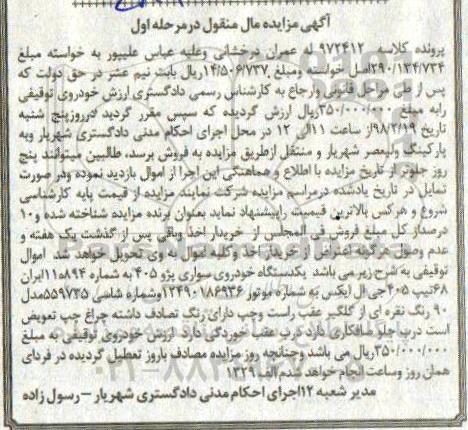 آگهی مزایده مال منقول درمرحله اول
پرونده کلاسه ۹۷۲۴۱۲ له عمران درخشانی وعلیه عباس علیپور به خواسته مبلغ
۲۹۰/۱۳۴/۷۳۴اصل خواسته ومبلغ ۱۴/۵۰۶/۷۳۷ریال بابت نیم عشر در حق دولت که
پس از طی مراحل قانونی وارجاع به کارشناس رسمی دادگستری ارزش خودروی توقیفی
رابه مبلغ ۳۵۰/۰۰۰/۰۰۰ریال ارزش گردیده که سپس مقرر گردید درروزپنج شنبه
تاریخ ۹۸۲/۱۹از ساعت ۱۱الی ۱۲ در محل اجرای احکام مدنی دادگستری شهریار وبه
پارکینگ ولیعصر شهریار و منتقل ازطریق مزایده به فروش برسد، طالبین میتوانند پنج
روز جلوتر از تاریخ مزایده با اطلاع و هماهنگی این اجرا از اموال بازدید نموده ودر صورت
تمایل در تاریخ یادشده درمراسم مزایده شرکت نمایند مزایده از قیمت پایه کارشناسی
شروع و هرکس بالاترین قیمت راپیشنهاد نماید بعنوان برنده مزایده شناخته شده و۱۰
درصداز کل مبلغ فروش فی المجلس از خریدار اخذ وباقی پس از گذشت یک هفته و
عدم وصول هرگونه اعتراض از خریدار اخذ وکلیه اموال به وی تحویل خواهد شد اموال
توقیفی به شرح زیر می باشد یکدستگاه خودروی سواری پژو ۴۰۵ به شماره ۸۹۴م۱۱ایران
۶۸تیپ ۴۰۵جی ال ایکس به شماره موتور ۱۲۴۹۰۱۸۶۹۳۶وشماره شاسی ۵۵۹۷۳۵مدل
۹۰ رنگ نقره ای از گلگیر عقب راست وچپ دارای رنگ تصادف داشته چراغ چپ تعویض
است درب جلو صافکاری دارد درب عقب خوردگی دارد ارزش خودروی توقیفی به مبلغ
۳۵۰/۰۰۰/۰۰۰ریال می باشد وچنانچه روز مزایده مصادف باروز تعطیل گردیده در فردای
همان روز وساعت انجام خواهد شدم الف ۱۳۲۹
مدیر شعبه ۱۲اجرای احکام مدنی دادگستری شهریار – رسول زاده